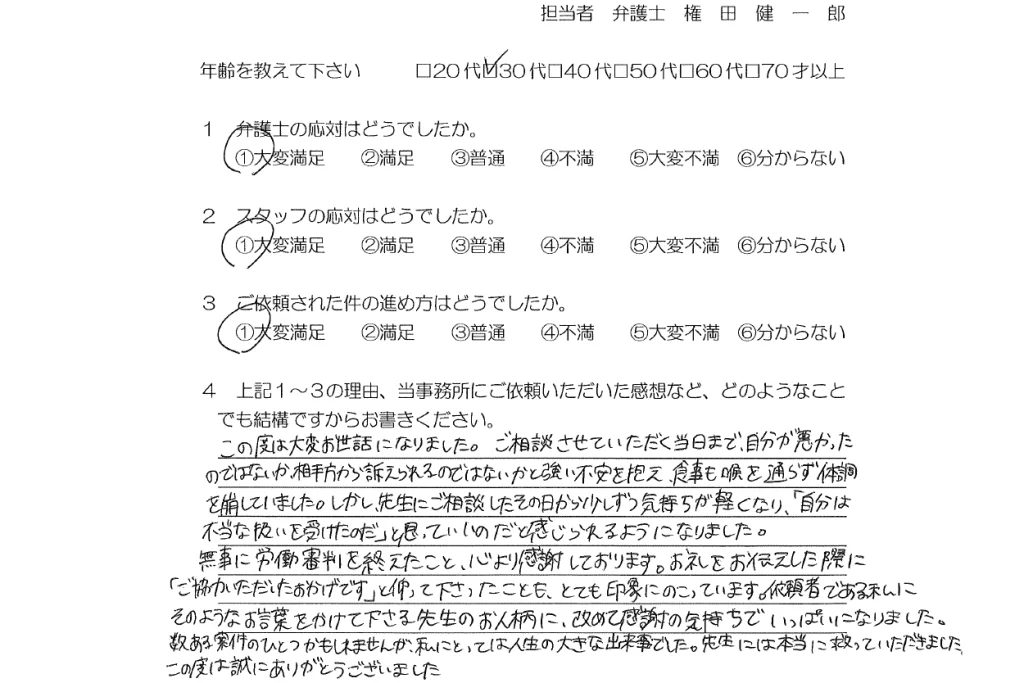 担当者 弁護士 権田健一郎
年齢を教えて下さい □20代☑30代□40代□50代□60代□70才以上
1 弁護士の応対はどうでしたか。
①大変満足 ②満足 ③普通 ④不満 ⑤大変不満 ⑥分からない
2 スタッフの応対はどうでしたか。
①大変満足 ②満足 ③普通 ④不満 ⑤大変不満 ⑥分からない
3 ご依頼された件の進め方はどうでしたか。
①大変満足 ②満足 ③普通 ④不満 ⑤大変不満 ⑥分からない
4 上記1～3の理由、当事務所にご依頼いただいた感想など、どのようなこと
でも結構ですからお書きください。
この度は大変お世話になりました。ご相談させていただく当日まで、自分が悪かった
のではないか、相手方から訴えられるのではないかと強い不安を抱え、食事も喉を通らず体調
を崩していました。しかし、先生にご相談したその日から少しずつ気持ちが軽くなり、「自分は
不当な扱いを受けたのだ」と思っていいのだと感じられるようになりました。
無事に労働審判を終えたこと、心より感謝しております。お礼をお伝えした際に
「ご協力いただいたおかげです」と仰って下さったことも、とても印象にのこっています。依頼者である私に
そのようなお言葉をかけて下さる先生のお人柄に、改めて感謝の気持ちでいっぱいになりました。
数ある案件のひとつかもしれませんが、私にとっては人生の大きな出来事でした。先生には本当に救っていただきました
この度は誠にありがとうございました